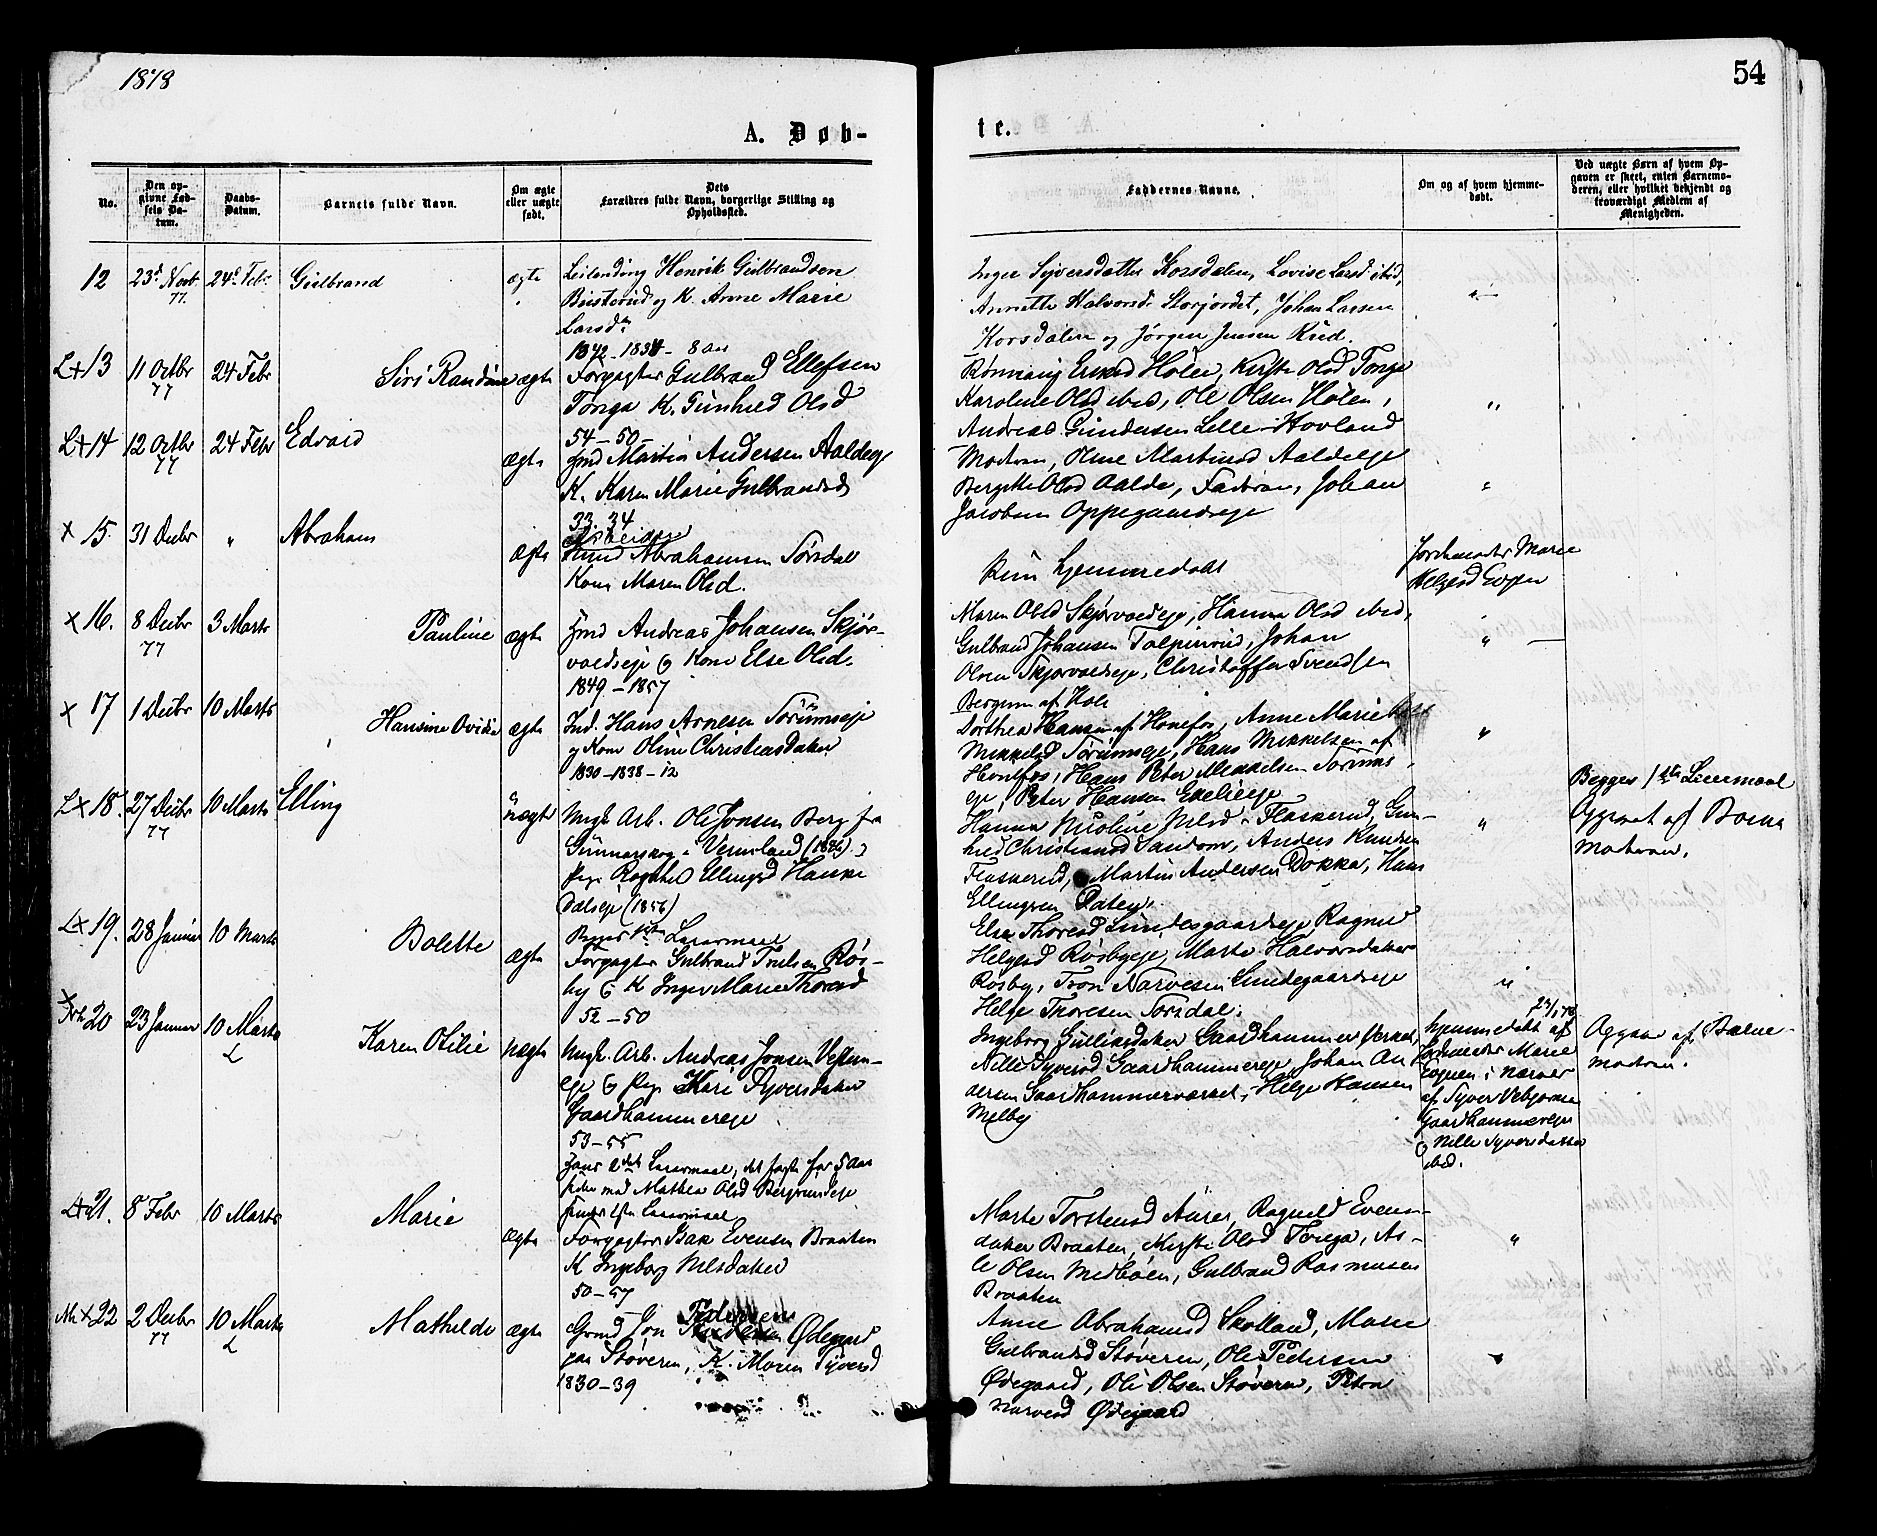 1878
54
A. Døb-
te.
No.
Den op-
givne Fød-
sels Da-
tum.
Daabs-
Datum.
Barnets fulde Navn.
Om ægte
eller uægte
født.
Dets
Forældres fulde Navn, borgerlige Stilling og
Opholdssted.
Faddernes Navne.
Om og af hvem hjemme-
døbt.
Ved uægte Børn af hvem Op-
gaven er skeet, enten Barnemo-
deren, eller hvilket bekjendt og
troværdigt Medlem af
Menigheden.
12 23d Novbr 77. 24d Febr Gulbrand ægte
Leilending Henrik Gulbrandsen
Busterud og K. Anne Marie
Larsdr
1842-1834- 8 Aar
Inger Syversdatter Korsdalen, Lovise Larsd ibid,
Annette Halvorsd. Storjordet, Johan Larsen
Korsdalen og Jørgen Jensen Rud.
L+13 11 Octbr 77 24 Febr Siri Randine ægte
Forpagter Gulbrand Ellefsen
Tonga K. Gunhild Olsd
54-50-
Rønnaug Ersd Hølen, Kirsti Olsd Tonga
Karoline Olsd ibid, Ole Olsen Hølen,
Andreas Gundersen Lille-Hovland
L+14 12 Octbr 77 24 Febr Edvard ægte
Ind Martin Andersen Aaldeeje
K. Karen Marie Gulbrandsd
33. 34
Modren, Oline Martinsd Aaldeeje
Bergitte Olsd Aalde, Fadren, Johan
Jacobsen Oppegaardseje
x 15. 31 Decbr " Abraham ægte
Arbeider
Knud Abrahamsen Sørsdal
Kone Maren Olsd.
Kun hjemmedøbt
Jordmoder Marie
Helgesd Eggen
x 16. 8 Decbr 77 3 Marts Pauline ægte
Ind Andreas Johansen Skjør-
voldseje & Kone Else Olsd.
1849-1857
Maren Olsd Skjørvoldeje, Hanna Olsd ibid,
Gulbrand Johansen Tolpinrud, Johan
Olsen Skjørvoldeje, Christoffer Svendsen
Bergum af Hole
x 17 1 Decbr 10 Marts Hansine Ovidia ægte
Ind. Hans Arnesen Sørumseje
og Kone Oline Christiansdatter
1830-1838-12
Dorthea Hansen af Hønefos, Anne Marie
Mikkelsd Sørumseje, Hans Mikkelsen af
Hønefos, Hans Peter Mikkelsen Sørums-
eje, Peter Hansen Ekelieeje
L+18 27 Decbr 77 10 Marts Elling uægte
Ungk. Arb. Ole Jonsen Berg fra
Gunnarskog i Vermland (1846)
Pige Ragnhild Ellingsd Hanke
Dalseje (1856)
Begges 1ste Leiermaal
Hanna Nicoline Nilsd Flaskerud, Gun-
hild Christiansd Sandom, Anders Knudsen
Flaskerud, Martin Andersen Dokka, Hans
Ellingsen Dateje.
Begges 1ste Leiermaal
Opgivet af Barne
modren.
L+19. 28 Januar 10 Marts Bolette ægte
Forpagter Gulbrand Truelsen Røs-
by & K Inger Marie Thoresd
52-50
Else Thoresd Lundesgaardseje Ragnild
Helgesd Røsbyeje, Marte Halvorsdatter
Røsby, Tron Narvesen Lundegaardseje
Helge Thoresen Sørsdal.
20 23 Januar 10 Marts L Karen Otilie uægte
Ungk. Arb. Andreas Jonsen Vestern-
eje & Pige Kari Syversdatter
Gaardhammereje
53-55
Hans 2det Leiermaal, det første for 5 Aar
siden med Mathea Olsd Bergsundeje
hendes 1ste Leiermaal
Ingeborg Gulliksdatter Gaardhammer Værket,
Nille Syversd Gaardhammereje Johan An-
dersen Gaardhammerværket, Helge Hansen
Melby
Hjemmedøbt af
Jordmoder Marie
Eggen i Nærvær
af Syver Vebjørnsen
Gaardhammereje
& Nille Syversdatter
ibid.
Opgivet af Barne-
modren.
L+21. 8 Febr 10 Marts Marie ægte
Forpagter Evensen Braaten
K Ingeborg Nilsdatter
50-57
Marte Torstensd Aurer, Ragnild Evens-
datter Braaten, Kirsti Olsd Tonga, As-
le Olsen Medbøen, Gulbrand Rasmusen
Braaten
22 2 Decbr 77 10 Marts L Mathilde ægte
Gmd Jon Pedersen Ødegaard
paa Støveren, K. Maren Syversd
1830-39
Anne Abrahamsd Skolland, Marie
Gulbransd Støveren, Ole Pedersen
Ødegaard, Ole Olsen Støveren, Petra
Narvesd Ødegaard